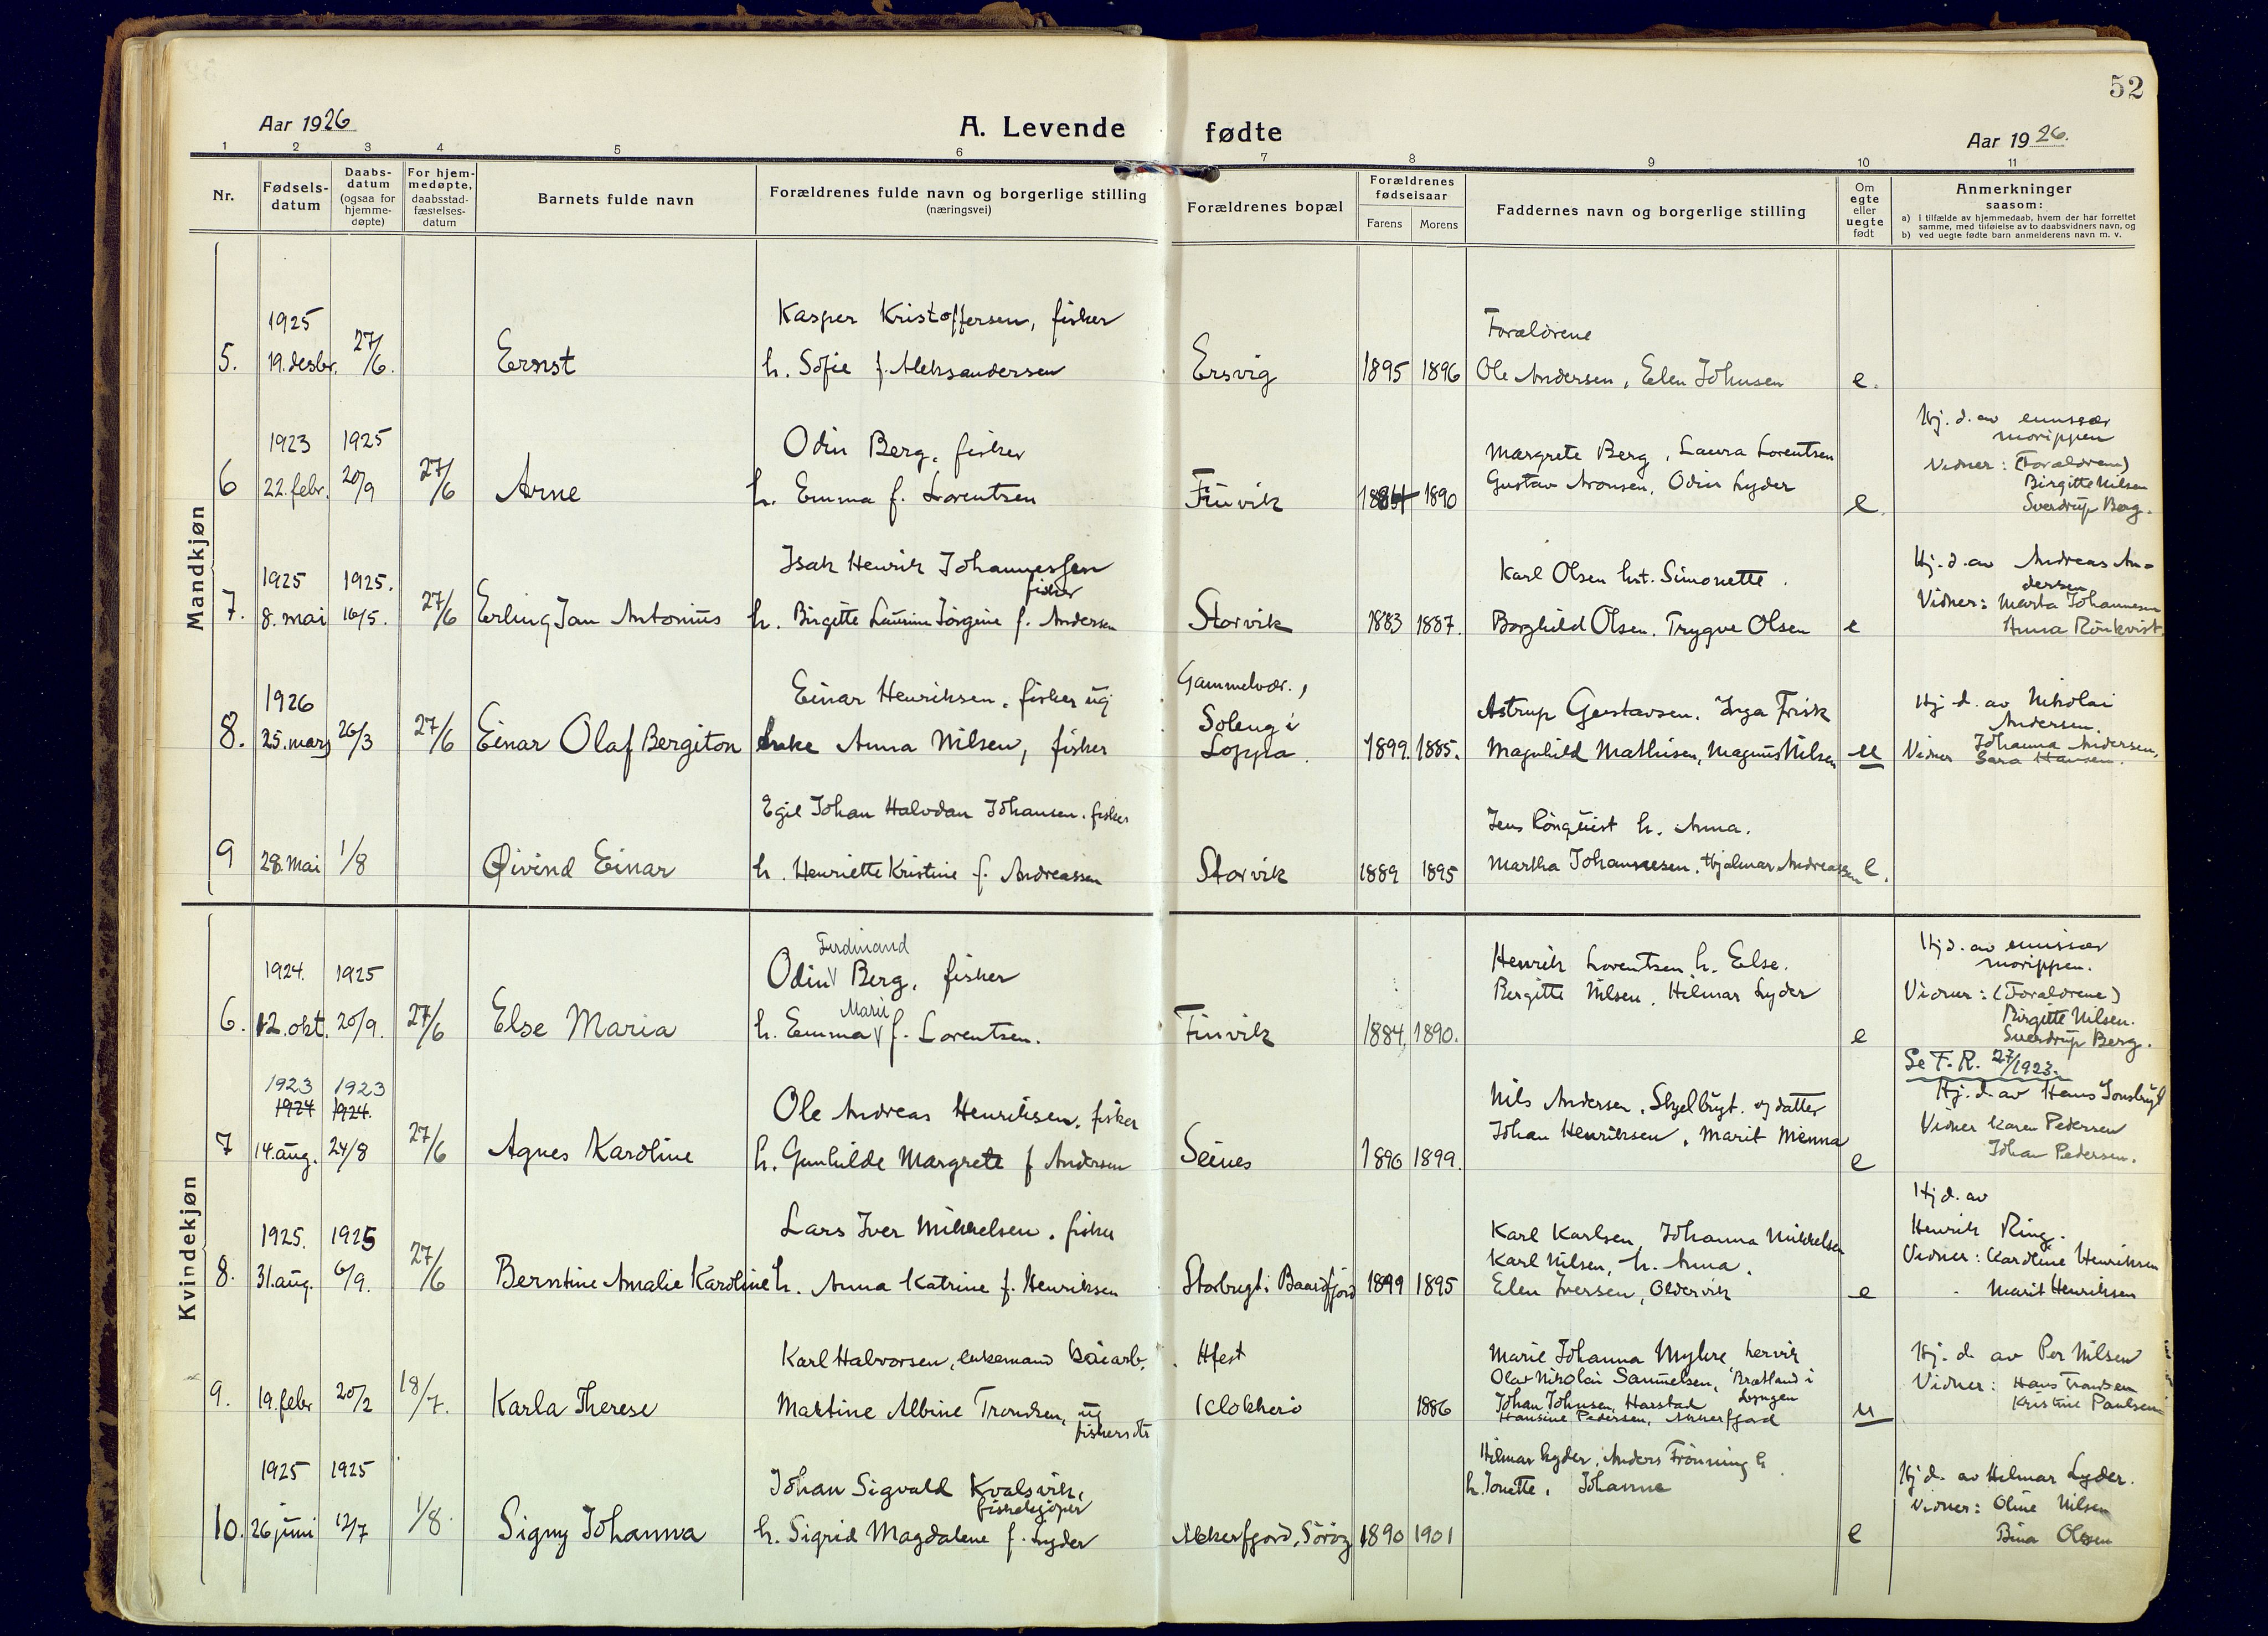 52
Aar 1926
A. Levende fødte
Aar 1926.
1 2 3 4 5 6 7 8 9 10 11
Nr.
Fødsels-
datum
Daabs-
datum
(ogsaa for
hjemme-
døpte)
For hjem-
medøpte,
daabsstad-
fæstelses-
datum
Barnets fulde navn
Forældrenes fulde navn og borgerlige stilling
(næringsvei)
Forældrenes bopæl
Forældrenes
fødselsaar
Farens Morens
Faddernes navn og borgerlige stilling
Om
egte
eller
uegte
født
Anmerkninger
saasom:
a) i tilfælde av hjemmedaab, hvem der har forrettet
samme, med tilføielse av to daabsvidners navn, og
b) ved uegte fødte barn anmelderens navn m. v.
Mandkjøn
1925
Kasper Kristoffersen, fisker
Forældrene
5. 19. desbr. 27/6. Ernst h. Sofie f. Aleksandersen Ersvig 1895 1896 Ole Andersen, Elen Johnsen e.
1923 1925
Odin Berg, fisker
Margrete Berg, Laura Lorentsen
Hj. d. av emissær
morippen
6 22. febr. 20/9 27/6 Arne h. Emma f. Lorentsen Finvik 1884 1890 Gustav Aronsen, Odin Lyder e.
Vidner: (Forældrene)
Birgitte Nilsen
Sverdrup Berg.
1925 1925.
Isak Henrik Johannessen
fisker
Karl Olsen hst. Simonette.
Hj. d. av Andreas An-
dersen
7. 8. mai 16/5. 27/6 Erling Jan Antonius h. Birgitte Laurine Jørgine f. Andersen Storvik 1883 1887. Borghild Olsen. Trygve Olsen e
Vidner: Marta Johannesen
Anna Rönkvist.
1926
Einar Henriksen, fisker ug
Gammelvær.,
Astrup Gustavsen. Inga Frisk
Hj. d. av Nikolai
Andersen.
8. 25. mars 26/3 27/6 Einar Olaf Bergiton enke Anna Nilsen, fisker Soleng i
Loppa. 1899. 1885. Magnhild Mathisen, Magnus Nilsen u
Vidner Johanna Andersen,
Sara Hansen.
Egil Johan Halvdan Johansen. fisker
Jens Rönquist h. Anna.
9 28. mai 1/8 Øivind Einar h. Henriette Kristine f. Andreassen Storvik 1889 1895 Martha Johannesen. Hjalmar Andreassen e.
Kvindekjøn
1924. 1925
Ferdinand
Odin Berg, fisker
Henrik Lorentsen h. Else.
Hj d. av emissær
morippen.
Marie
Bergitte Nilsen. Hilmar Lyder
Vidner: (Forældrene)
6. 12. okt. 20/9. 27/6 Else Maria h. Emma f. Lorentsen. Finvik 1884, 1890. e
Birgitte Nilsen.
Sverdrup Berg.
1923 1923
1924 1924.
Ole Andreas Henriksen, fisker
Nils Andersen, Skjelbugt. og datter
Se F. R. 27/1923.
Hj. d. av Hans Jonsbugt
7 14. aug. 24/8 27/6 Agnes Karoline h. Gunhilde Margrete f Andersen Seines 1896 1899. Johan Henriksen, Marit Menna e
Vidner Karen Pedersen
Johan Pedersen.
1925. 1925
Lars Iver Mikkelsen. fisker
Karl Karlsen, Johanna Mikkelsen
Karl Nilsen, h. Anna.
Hj d. av
Henrik Ring.
8. 31. aug. 6/9. 27/6 Berntine Amalie Karoline h. Anna Katrine f. Henriksen Storbugt i Baardfjord 1899 1895 Elen Iversen, Oldervik e
Vidner: Karoline Henriksen
Marit Henriksen
Karl Halvorsen, enkemand kaiarb.
Hfest
Marie Johanna Myhre, Lervik
Olav Nikolai Samuelsen, Brætland i
Lyngen
Hj. d. av Per Nilsen
9. 19. febr 20/2 18/7. Karla Therese Martine Albine Trondsen, ug
fiskersdtr Klokkerö 1886 Johan Johnsen, Harstad
Hansine Pedersen, Akkerfjord u
Vidner: Hans Trondsen
Kristine Paulsen
1925 1925
Johan Sigvald Kvalsvik,
fiskekjøper
Hilmar Lyder, Anders Frönning h.
h. Jonette, Johanne
Hj d. av Hilmar Lyder.
10. 26 juni 12/7 1/8. Signy Johanna h. Sigrid Magdalene f. Lyder Akkerfjord, Sørøy 1890 1901 e
Vidner: Oline Nilsen
Bina Olsen